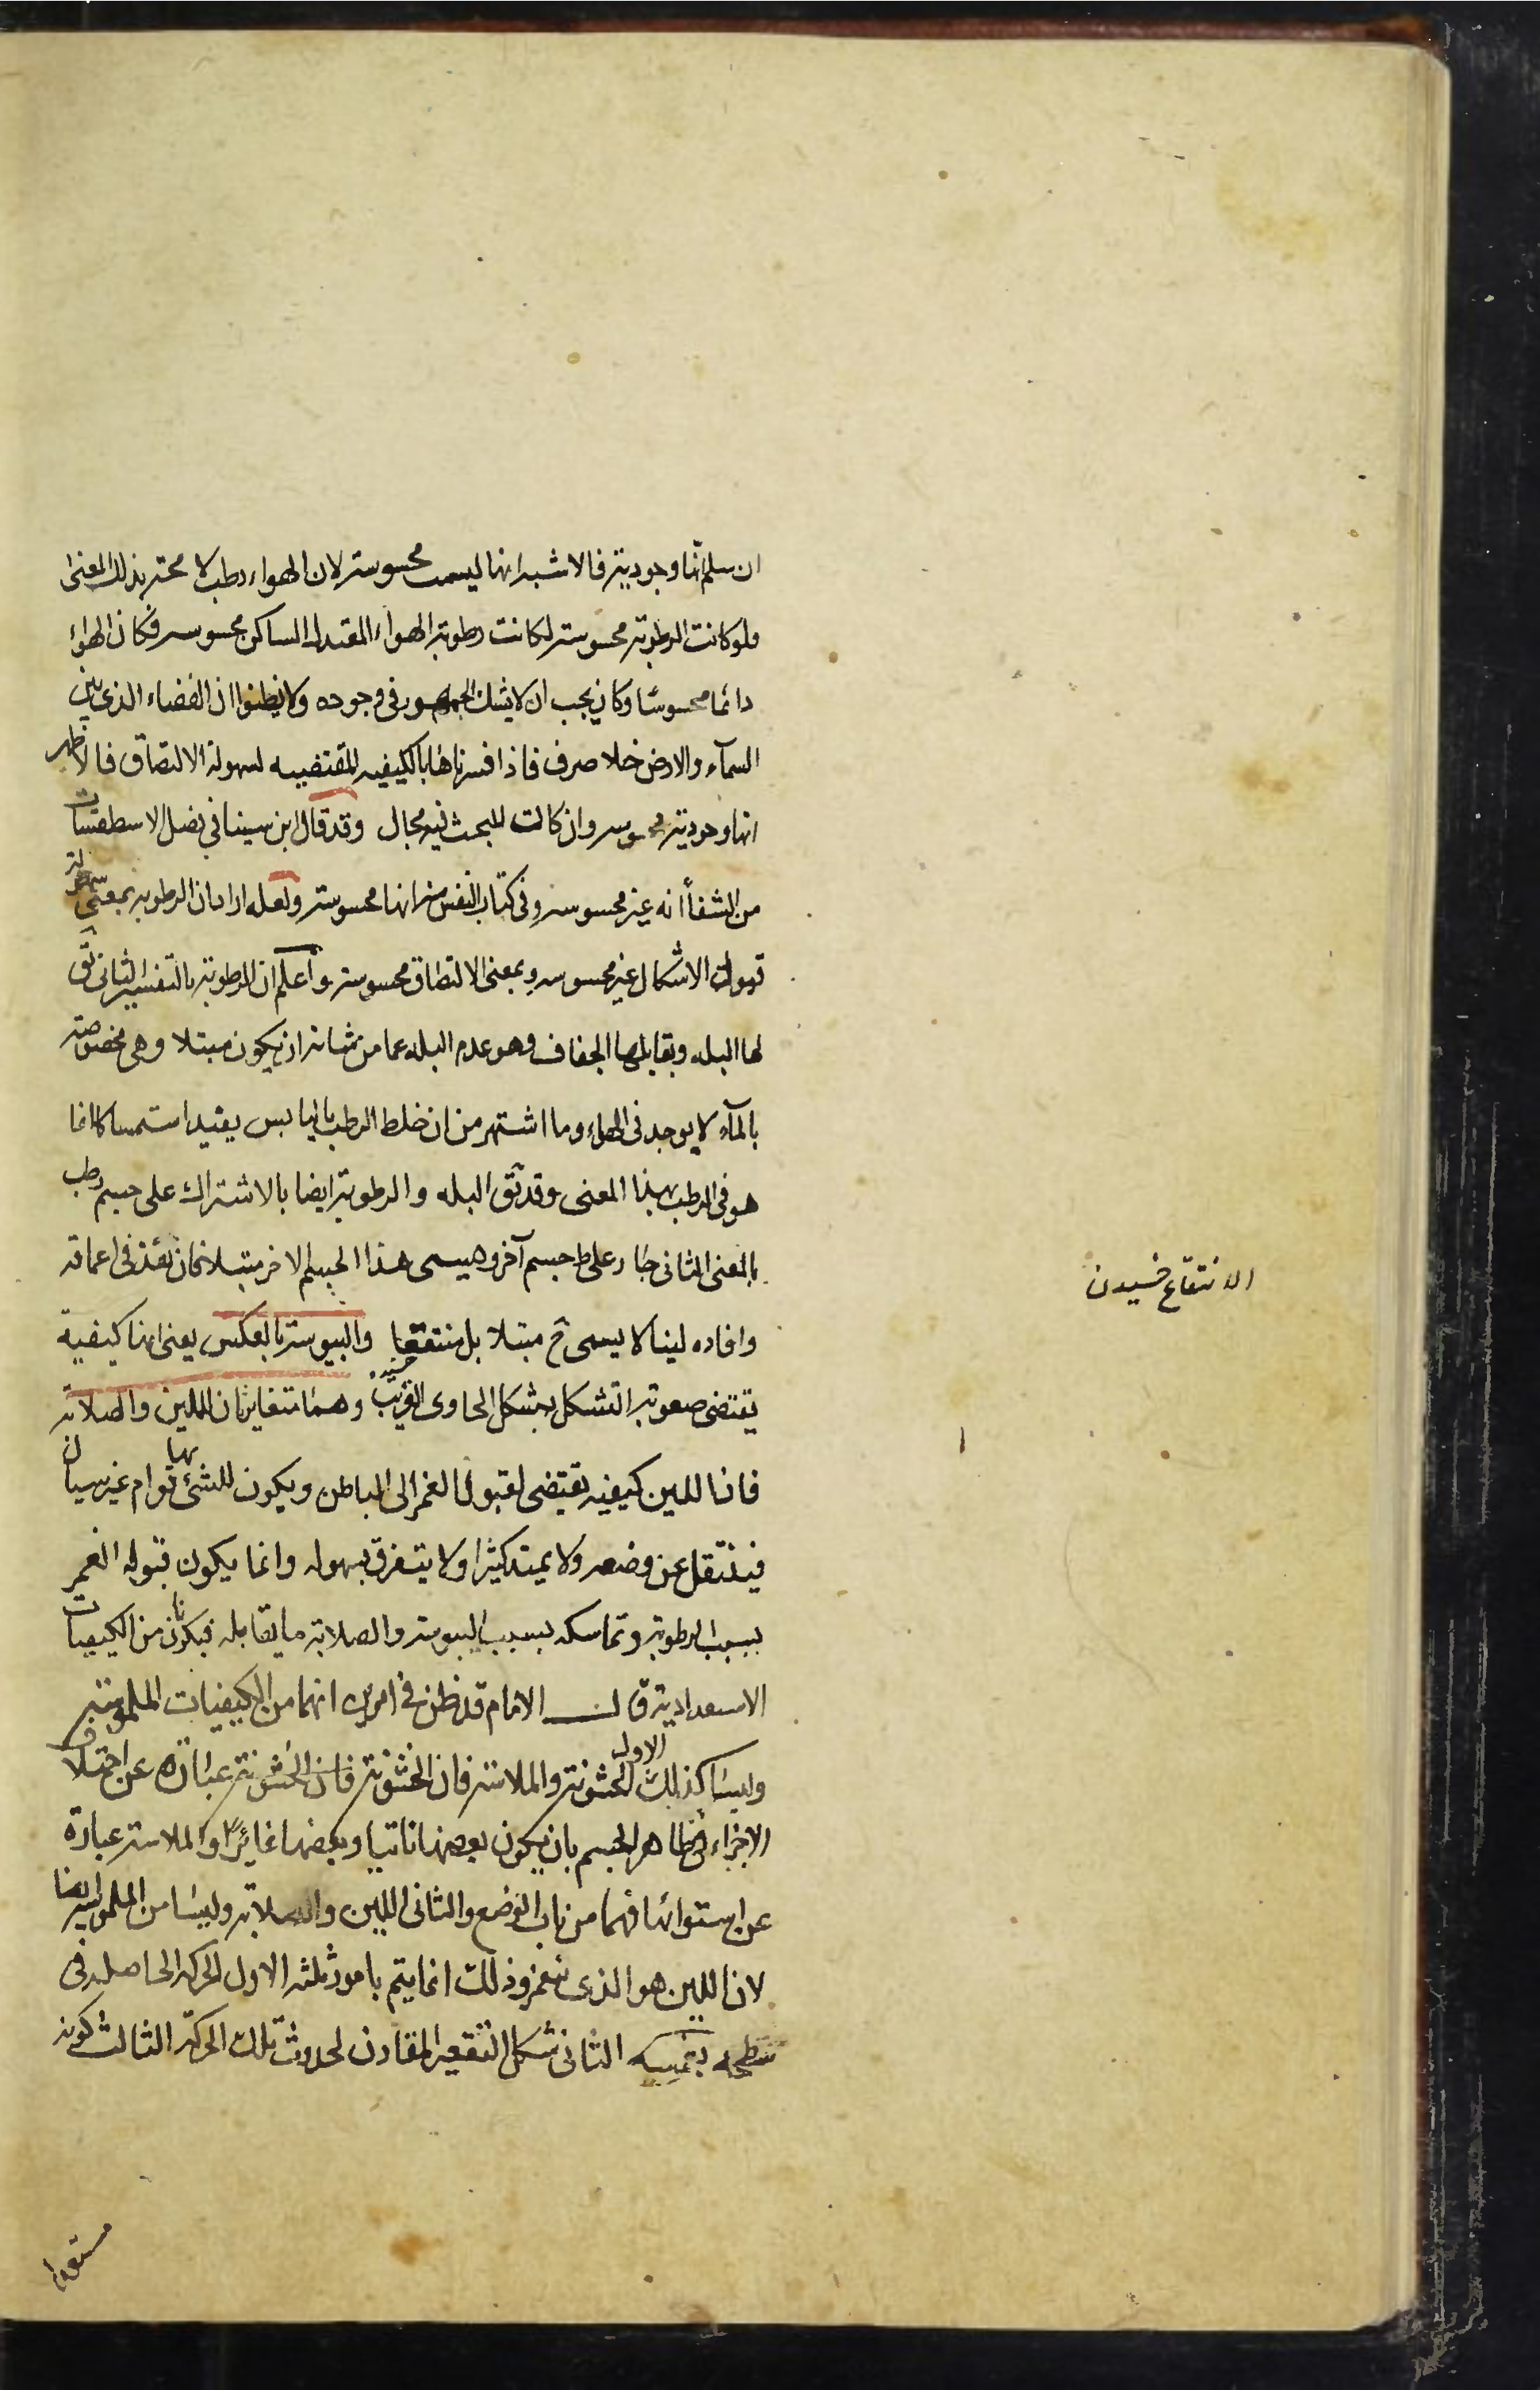 ان سلم انها وجودية فالاشبه انها ليست محسوسة لان الهواء رطب لا محة بذلك المعنى
فلو كانت الرطوبة محسوسة لكانت رطوبة الهواء المعتدل الساكن محسوسه فكان الهواء
دائما محسوسا وكان يجب ان لا يشك الجمهور في وجوده ولا يظنوا ان الفضاء الذي بين
السمآء والارض خلا صرف فاذا فسرناها بالكيفيه المقتضيه لسهولة الالتصاق فالاظهر
انها وجودية محسوسه وان كانت للبحث فيه مجال وقد قال ابن سينا في فصل الاسطقسات
من الشفأ انه غير محسوسه وفي كتاب النفس منه انها محسوسة ولعله اراد ان الرطوبه بمعنى سهولة
قبول الاشكال غير محسوسه وبمعنى الالتصاق محسوسة واعلم ان الرطوبة بالتفسير الثاني يق
لها البله ويقابلها الجفاف وهو عدم البله عما من شانه ان يكون مبتلا وهي مخصوصة
بالمآء لا يوجد في الهواء وما اشتهر من ان خلط الرطب باليابس يفيد استمساكا فا
هو في الرطب بهذا المعنى وقد يق البله والرطوبة ايضا بالاشتراك على جسم رطب
بالمعنى الثاني جار على ط جسم آخر وهيسمى هذا الجسم الاخر مبتلا فان نفذ في اعماقه
وافاده لينا لا يسمى ح مبتلا بل منتقعا واليبوسة بالعكس يعني انها كيفية
الانتقاع خسيدن
يقتضي صعوبة التشكل بشكل الحاوى القريب وهما متغايرتان اللين والصلابة
فان اللين كيفيه يقتضى لقبول الغمز الى الباطن ويكون للشئ بها قوام غير سيال
فينتقل عن وضعه ولا يمتد كثيرا ولا يتفرق بسهوله وانما يكون قبوله الغمز
بسبب الرطوبة وتماسكه بسبب اليبوسة والصلابة ما يقابله فيكونان من الكيفيات
الاستعدادية قال الامام قد ظن في امرين انهما من الكيفيات الملموسة
وليسا كذلك الاول الخشونة والملاسة فان الخشونة فان الخشونة عبارة عن اختلاف
الاجزاء في ظاهر الجسم بان يكون بعضها ناتيا وبعضها غائرا والملاسة عبارة
عن استوائها فهما من باب الوضع والثاني اللين والصلابة وليسا من الملموسه ايضا
لان اللين هو الذى ينغمز وذلك انما يتم بامور ثلثه الاول الحركه الحاصله في
سطحه الثاني شكل التقعير المقارن لحدوث تلك الحركة الثالث كونه
مستعدا